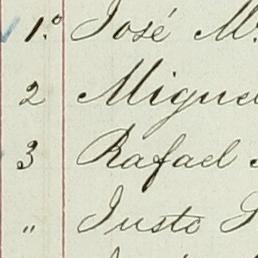 1.º José M.
2 Miguel
3 Rafael
" Justo